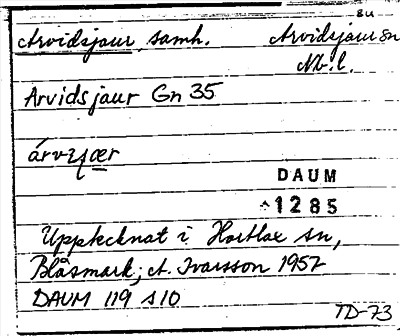 su
Arvidsjaur, samh. Arvidsjaur sn
Nb. l.
Arvidsjaur Gn 35
DAUM
1285
Upptecknat i Hortlax sn,
Blåsmark; ct. Ivarsson 1957
DAUM 119 s10
TD-73